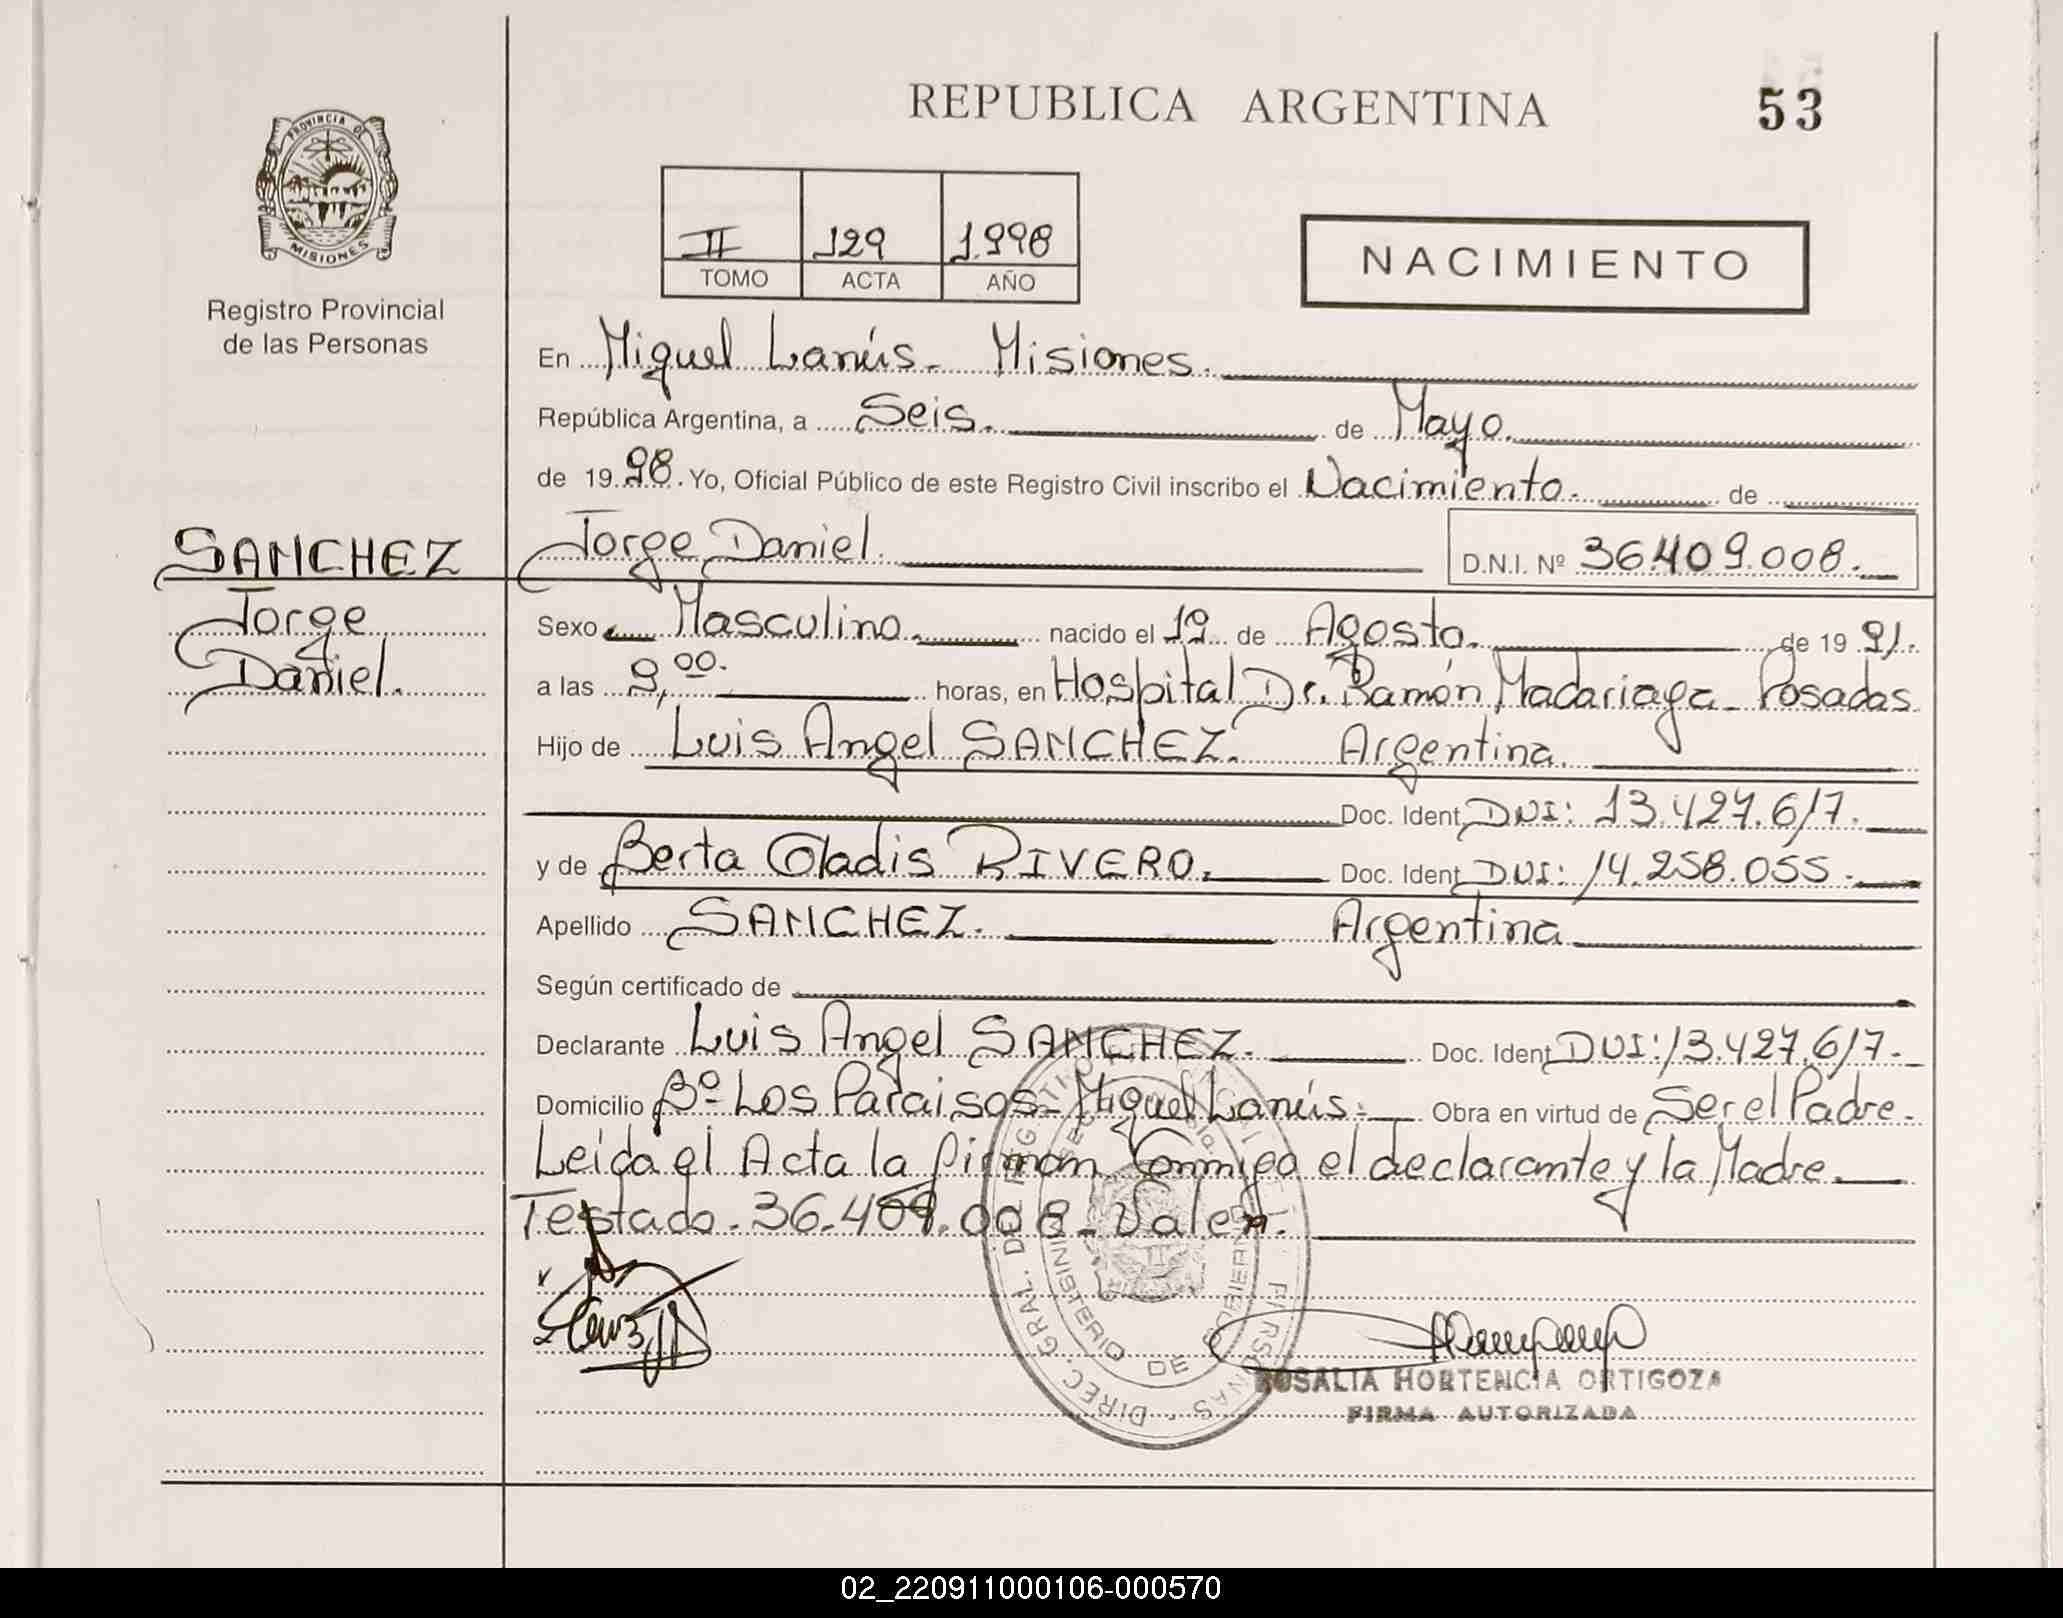 REPUBLICA ARGENTINA
53
PROVINCIA DE MISIONES
Registro Provincial
de las Personas
II 129 1.998
TOMO ACTA AÑO
NACIMIENTO
En Miguel Lanús - Misiones.
República Argentina, a Seis. de Mayo.
de 19 98. Yo, Oficial Público de este Registro Civil inscribo el Nacimiento. de
SANCHEZ
Jorge
Daniel.
Jorge Daniel. D.N.I. Nº 36.409.008.
Sexo Masculino. nacido el 19 de Agosto. de 19 91.
a las 9,00. horas, en Hospital Dr. Ramón Madariaga - Posadas
Hijo de Luis Angel SANCHEZ. Argentina.
Doc. Ident. DNI: 13.427.617.
y de Berta Gladis RIVERO. Doc. Ident. DNI: 14.258.055.
Apellido SANCHEZ. Argentina
Según certificado de
Declarante Luis Angel SANCHEZ. Doc. Ident. DNI: 13.427.617.
Domicilio Bº Los Paraisos - Miguel Lanús. Obra en virtud de Ser el Padre.
Leída el Acta la firman conmigo el declarante y la Madre.
Testado. 36.409.008 - Valen.
DIREC. GRAL. DEL REGISTRO PROVINCIAL DE LAS PERSONAS
MINISTERIO DE GOBIERNO
ROSALIA HORTENCIA ORTIGOZA
FIRMA AUTORIZADA
02_220911000106-000570